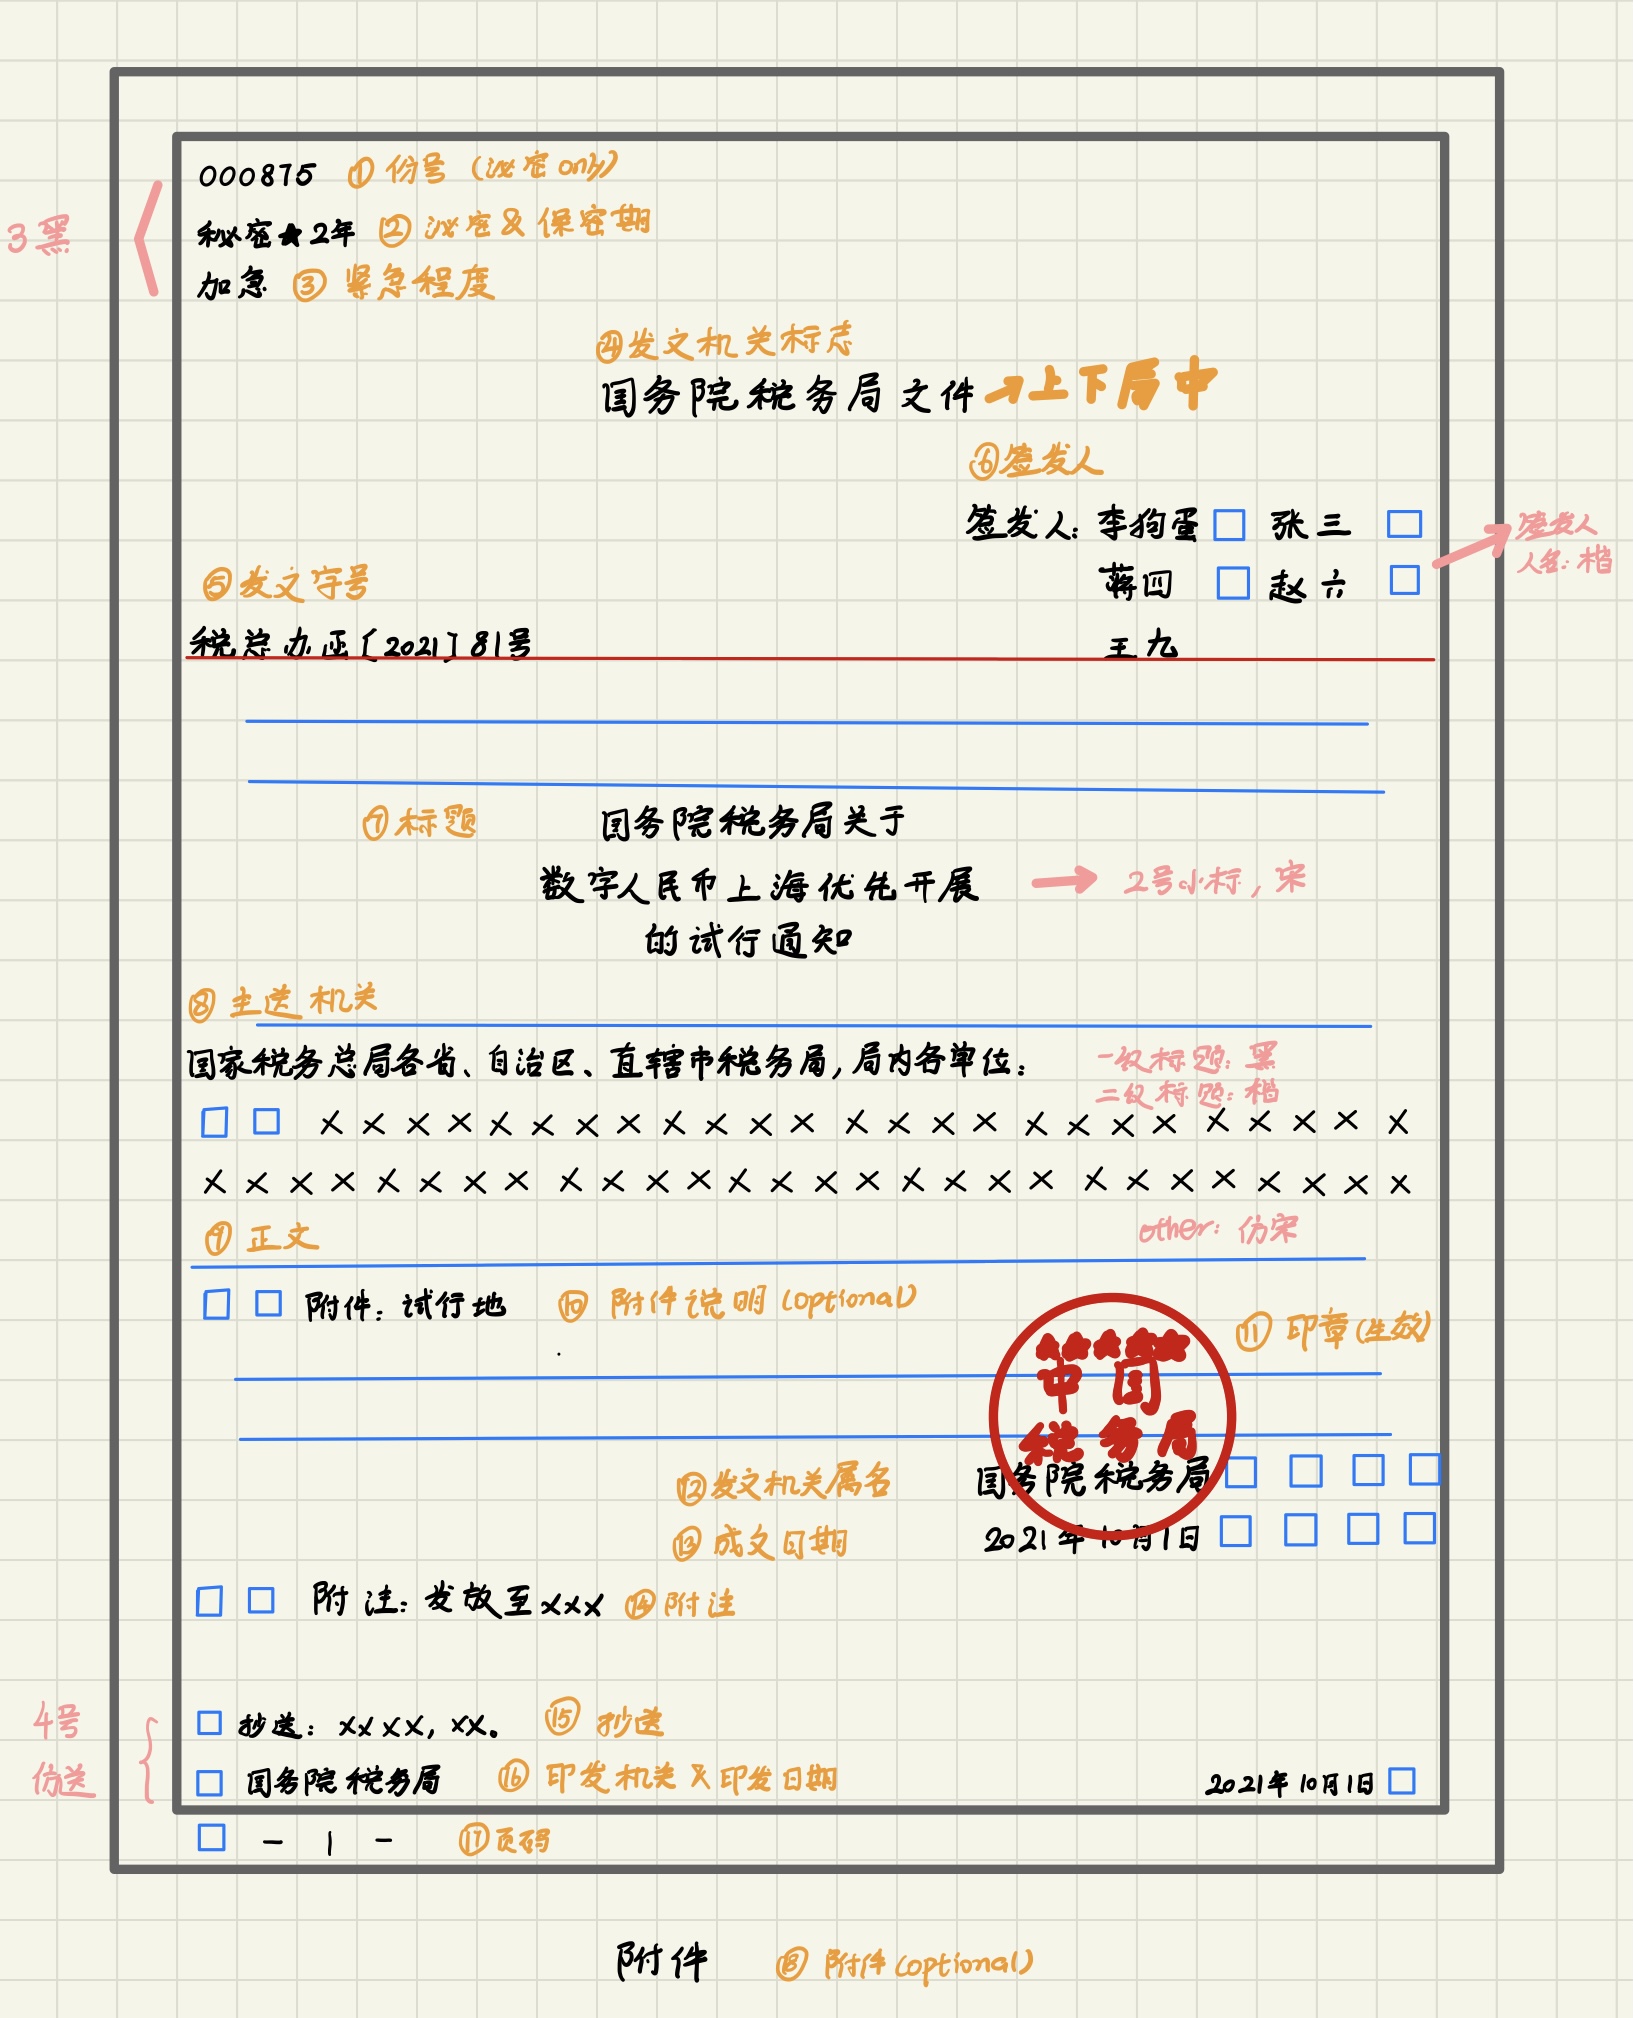 000875 ① 份号 (泌密 only)
3黑
秘密★2年 ② 泌密 & 保密期
加急 ③ 紧急程度
④发文机关标志
国务院税务局文件 → 上下居中
⑥签发人
签发人：李狗蛋 □ 张三 □
签发人
人名：楷
⑤发文字号
蒋四 □ 赵六 □
税总办函〔2021〕81号 王九
⑦标题 国务院税务局关于
数字人民币上海优先开展 → 2号小标，宋
的试行通知
⑧ 主送机关
国家税务总局各省、自治区、直辖市税务局，局内各单位：
一级标题：黑
二级标题：楷
□ □ × × × × × × × × × × × × × × × × × × × × × × × × ×
× × × × × × × × × × × × × × × × × × × × × × × × × × × ×
⑨ 正文
other：仿宋
□ □ 附件：试行地 ⑩ 附件说明 (optional)
⑪ 印章(生效)
中国
税务局
⑫发文机关属名 国务院税务局 □ □ □ □
⑬ 成文日期 2021年10月1日 □ □ □ □
□ □ 附注：发放至xxx ⑭附注
4号
仿送
□ 抄送：xxxx，xx。 ⑮ 抄送
□ 国务院税务局 ⑯ 印发机关 & 印发日期 2021年10月1日 □
□ - 1 - ⑰页码
附件 ⑱ 附件(optional)